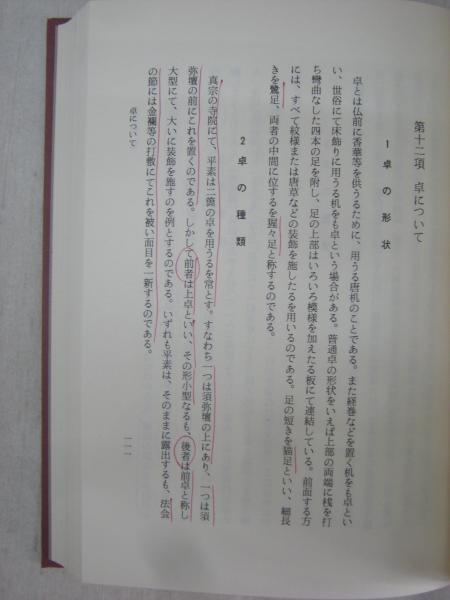 第十二項　卓について
1　卓の形状
卓とは仏前に香華等を供うるために、用うる唐机のことである。また経巻などを置く机をも卓とい
い、世俗にて床飾りに用うる机をも卓という場合がある。普通卓の形状をいえば上部の両端に桟を打
ち彎曲なした四本の足を附し、足の上部はいろいろ模様を加えたる板にて連結している。前面する方
には、すべて紋様または唐草などの装飾を施したるを用いるのである。足の短きを猫足といい、細長
きを鷺足、両者の中間に位するを猩々足と称するのである。
2　卓の種類
真宗の寺院にて、平素は二箇の卓を用うるを常とす。すなわち一つは須弥壇の上にあり、一つは須
弥壇の前にこれを置くのである。しかして前者は上卓といい、その形小型なるも、後者は前卓と称し
大型にて、大いに装飾を施すのを例とするのである。いずれも平素は、そのままに露出するも、法会
の節には金襴等の打敷にてこれを被い面目を一新するのである。
卓について
一一一